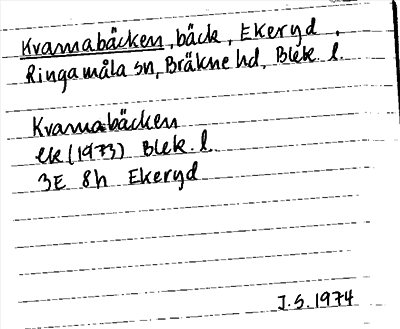 Kvarnabäcken, bäck, Ekeryd.
Ringamåla sn, Bräkne hd, Blek. l.
Kvarnabäcken
ek (1973) Blek. l.
3E 8h Ekeryd
J.S. 1974